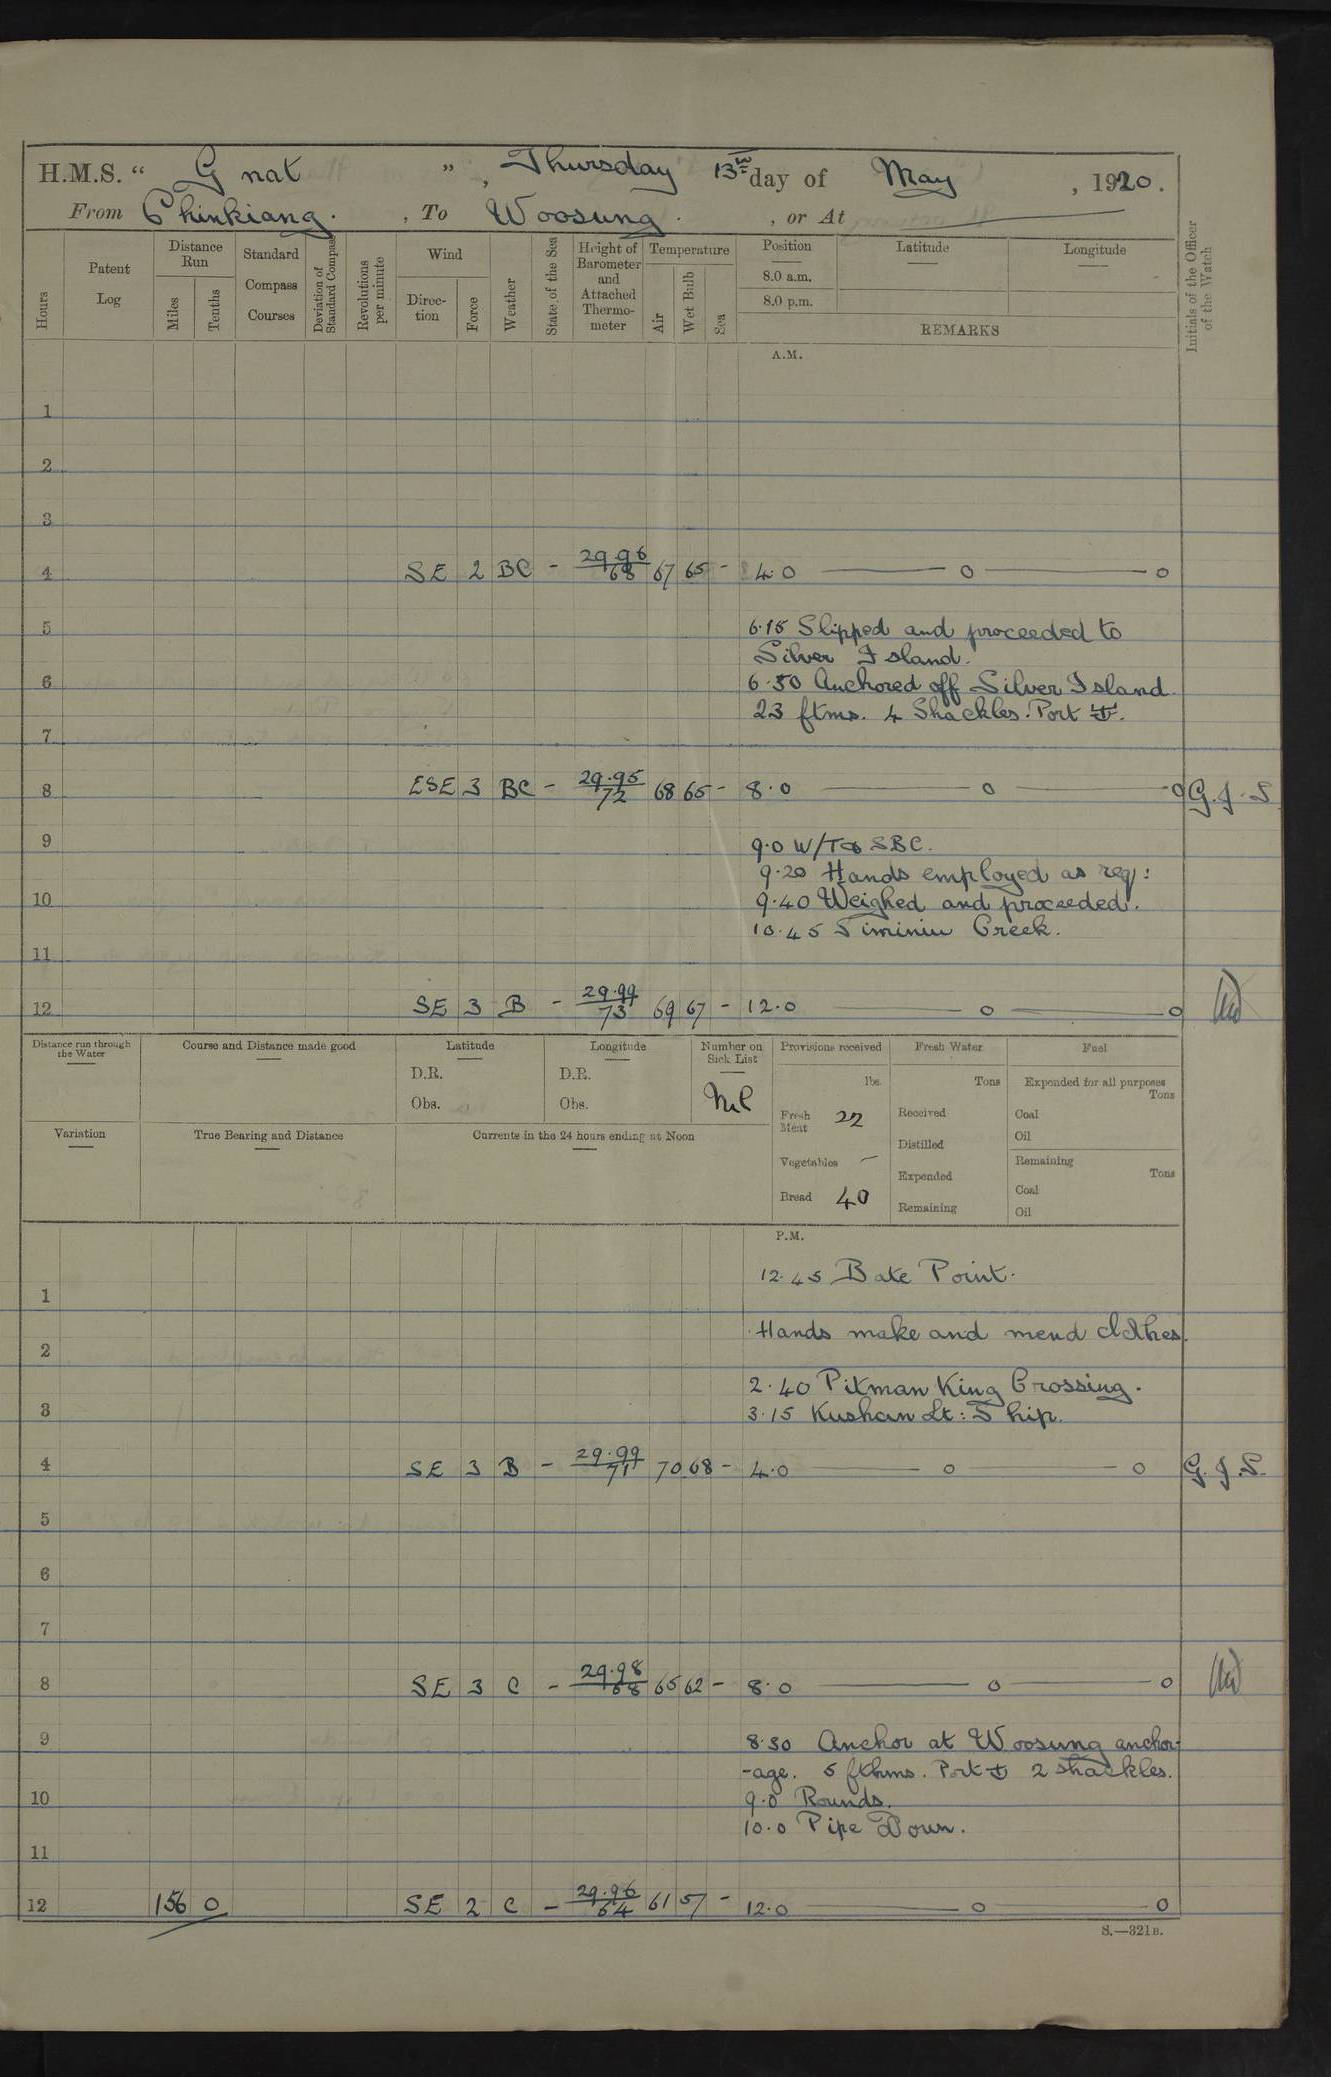 H.M.S. “ Gnat ” , Thursday 13th day of May , 1920 .
From Chinkiang . , To Woosung . , or At
Hours
Patent Log
Distance Run
Miles
Tenths
Standard Compass Courses
Deviation of Standard Compass
Revolutions per minute
Wind
Direc- tion
Force
Weather
State of the Sea
Height of Barometer and Attached Thermo- meter
Temperature
Air
Wet Bulb
Sea
Position
8.0 a.m.
8.0 p.m.
Latitude
Longitude
REMARKS
Initials of the Officer of the Watch
A.M.
1
2
3
4 SE 2 BC - 29.96 68 67 65 - 4.0 ——— o ——— o
5 6.15 Slipped and proceeded to
Silver Island.
6 6.50 Anchored off Silver Island
23 ftms. 4 Shackles. Port ⚓.
7
8 ESE 3 BC - 29.95 72 68 65 - 8.0 ——— o ——— o G.J.S
9 9.0 W/T SBC.
9.20 Hands employed as req:
10 9.40 Weighed and proceeded.
10.45 Siminiu Creek.
11
12 SE 3 B - 29.99 73 69 67 - 12.0 ——— o ——— o
Distance run through the Water
Course and Distance made good
Latitude
D.R.
Obs.
Longitude
D.R.
Obs.
Number on Sick List
Nil
Provisions received
lbs.
Fresh Meat 22
Vegetables —
Bread 40
Fresh Water
Tons
Received
Distilled
Expended
Remaining
Fuel
Expended for all purposes
Tons
Coal
Oil
Remaining
Tons
Coal
Oil
Variation
True Bearing and Distance
Currents in the 24 hours ending at Noon
P.M.
12.45 Bate Point.
1
Hands make and mend clothes.
2
2.40 Pitman King Crossing.
3 3.15 Kushan Lt: Ship.
4 SE 3 B - 29.99 71 70 68 - 4.0 ——— o ——— o G.J.S.
5
6
7
8 SE 3 C - 29.98 68 65 62 - 8.0 ——— o ——— o
9 8.30 Anchor at Woosung anchor-
-age. 5 fthms. Port ⚓ 2 shackles.
10 9.0 Rounds.
10.0 Pipe Down.
11
12 156 0 SE 2 C - 29.96 64 61 57 - 12.0 ——— o ——— o
S.—321B.